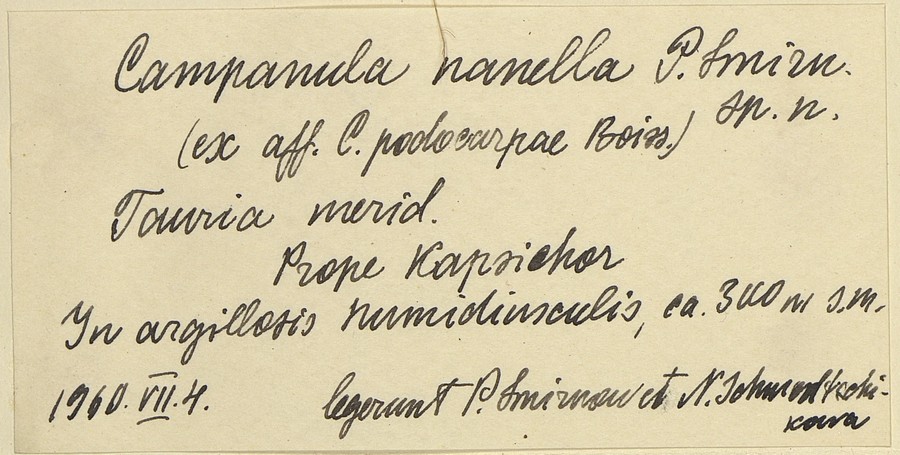 Campanula nanella P. Smirn.
sp. n.
(ex aff. C. podocarpae Boiss.)
Tauria merid.
Prope Kapsichor
In argillosis humidiusculis, ca. 300 m s.m.
1960. VII. 4. legerunt P. Smirnow et N.
kova